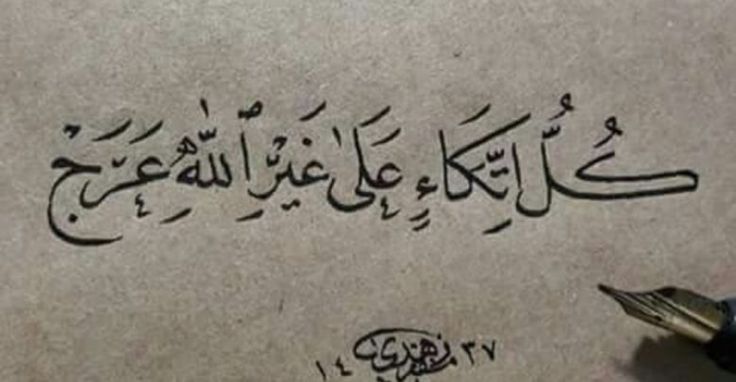 كُلُّ اِتِّكَاءٍ عَلَىٰ غَيْرِ ٱللّٰهِ عَرَجْ
١٤ ٣٧